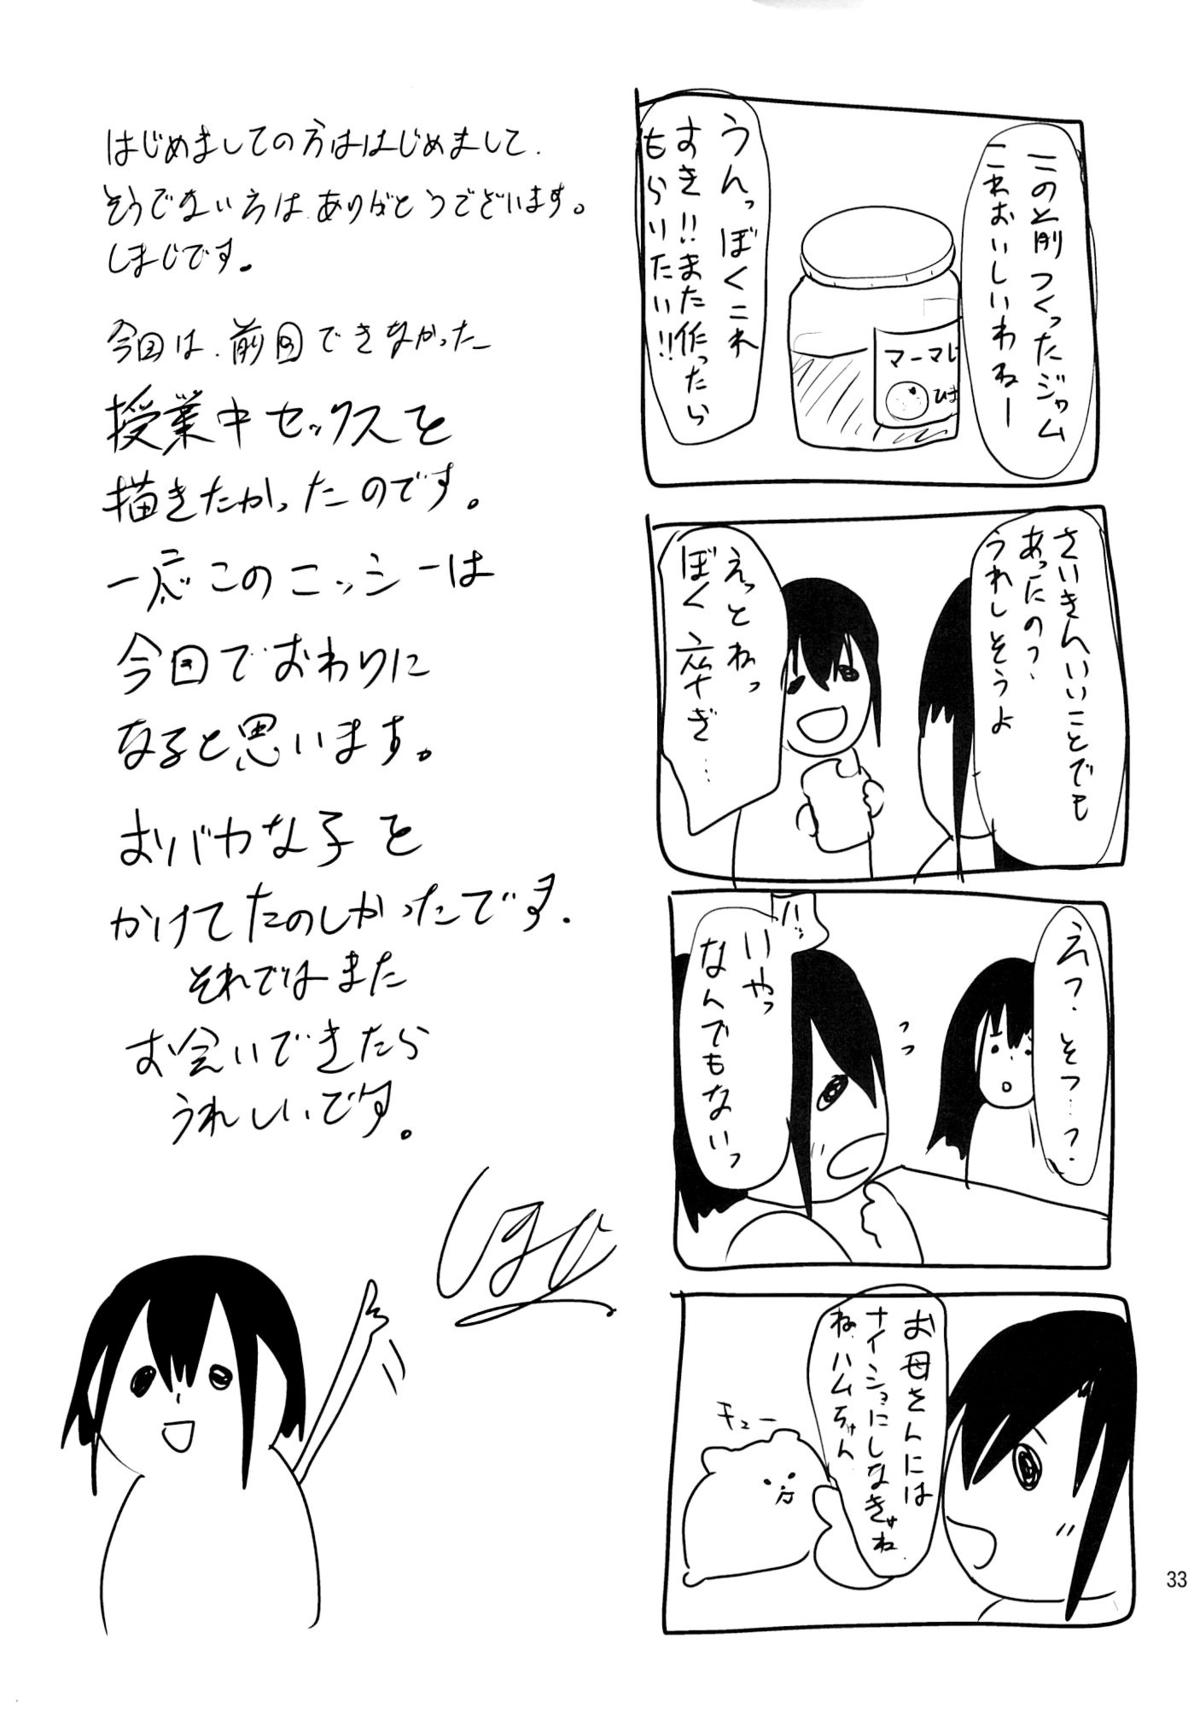 はじめましての方ははじめまして、
そうでない方は、ありがとうございます。
しまじです。
今回は、前回できなかった
授業中セックスを
描きたかったのです。
一応このニッシーは
今回でおわりに
なると思います。
おバカな子を
かけてたのしかったです。
それではまた
お会いできたら
うれしいです。
しまじ
この前つくったジャム
これおいしいわねー
うんっぼくこれ
すき!!また作ったら
もらいたい!!
マーマレ
さいきんいいことでも
あったの?
うれしそうよ
えっとねっ
ぼく
えっ?そっ…?
ハッ
いやっ
なんでもないっ
お母さんには
ナイショにしなきゃね
ね、ハムちゃん
キュー
33